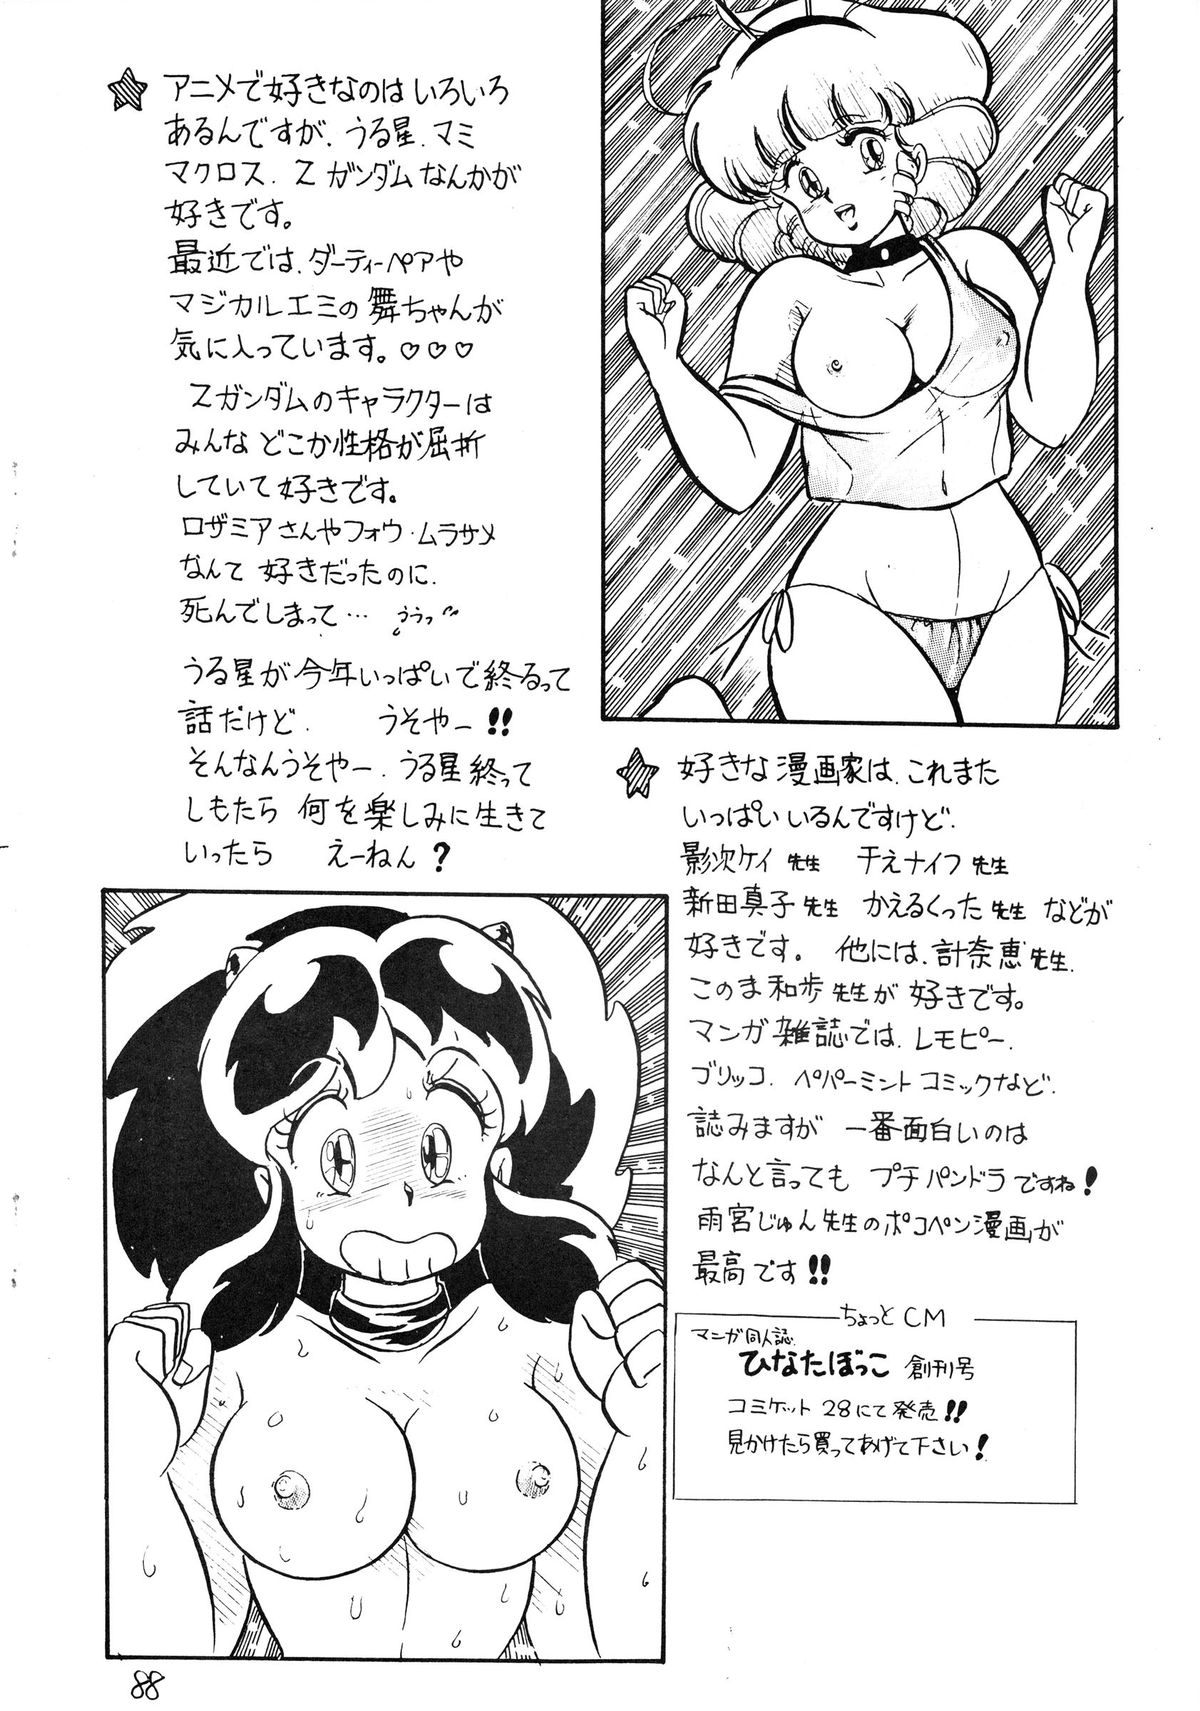 アニメで好きなのは いろいろ
あるんですが、うる星、マミ
マクロス、Zガンダムなんかが
好きです。
最近では、ダーティーペアや
マジカルエミの舞ちゃんが
気に入っています。♡♡♡
Zガンダムのキャラクターは
みんな どこか性格が屈折
していて 好きです。
ロザミアさんやフォウ・ムラサメ
なんて 好きだったのに、
死んでしまって… ううっ
うる星が今年いっぱいで終るって
話だけど、 うそやー!!
そんなんうそやー、うる星終って
しもたら 何を楽しみに生きて
いったら えーねん?
好きな漫画家は、これまた
いっぱい いるんですけど、
影次ケイ先生 千之ナイフ先生
新田真子先生 かえるくった先生 などが
好きです。 他には、計奈恵先生、
このま和歩先生が 好きです。
マンガ雑誌では、レモピー、
ブリッコ、ペパーミントコミックなど、
読みますが 一番面白いのは
なんと言っても プチパンドラですね!
雨宮じゅん先生のポコペン漫画が
最高です!!
ちょっとCM
マンガ同人誌
ひなたぼっこ 創刊号
コミケット28にて発売!!
見かけたら買ってあげて下さい!
88